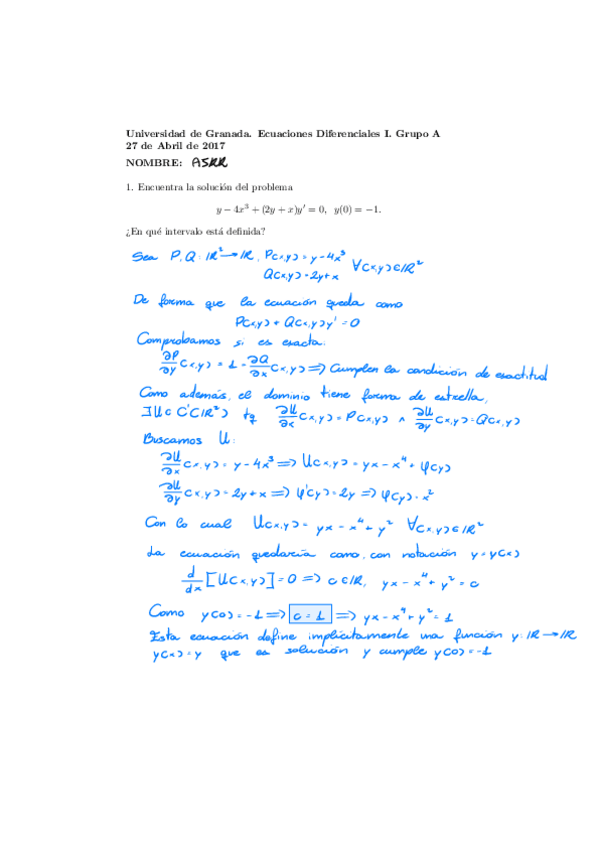 Universidad de Granada. Ecuaciones Diferenciales I. Grupo A
27 de Abril de 2017
NOMBRE: ASRR
1. Encuentra la solución del problema
y − 4x³ + (2y + x)y′ = 0, y(0) = −1.
¿En qué intervalo está definida?
Sea P,Q: ℝ² → ℝ, P(x,y) = y-4x³ ∀(x,y)∈ℝ²
Q(x,y) = 2y+x
De forma que la ecuación queda como
P(x,y) + Q(x,y)y' = 0
Comprobamos si es exacta:
∂P/∂y (x,y) = 1 = ∂Q/∂x (x,y) ⇒ Cumplen la condición de exactitud
Como además, el dominio tiene forma de estrella,
∃U∈C¹(ℝ²) tq ∂U/∂x (x,y) = P(x,y) ∧ ∂U/∂y (x,y) = Q(x,y)
Buscamos U:
∂U/∂x (x,y) = y-4x³ ⇒ U(x,y) = yx - x⁴ + φ(y)
∂U/∂y (x,y) = 2y+x ⇒ φ'(y) = 2y ⇒ φ(y) = x²
Con lo cual U(x,y) = yx - x⁴ + y² ∀(x,y)∈ℝ²
La ecuación quedaría como, con notación y=y(x)
d/dx [U(x,y)] = 0 ⇒ c∈ℝ, yx - x⁴ + y² = c
Como y(0) = -1 ⇒ c = 1 ⇒ yx - x⁴ + y² = 1
Esta ecuación define implícitamente una función y: ℝ → ℝ
y(x) = y que es solución y cumple y(0) = -1